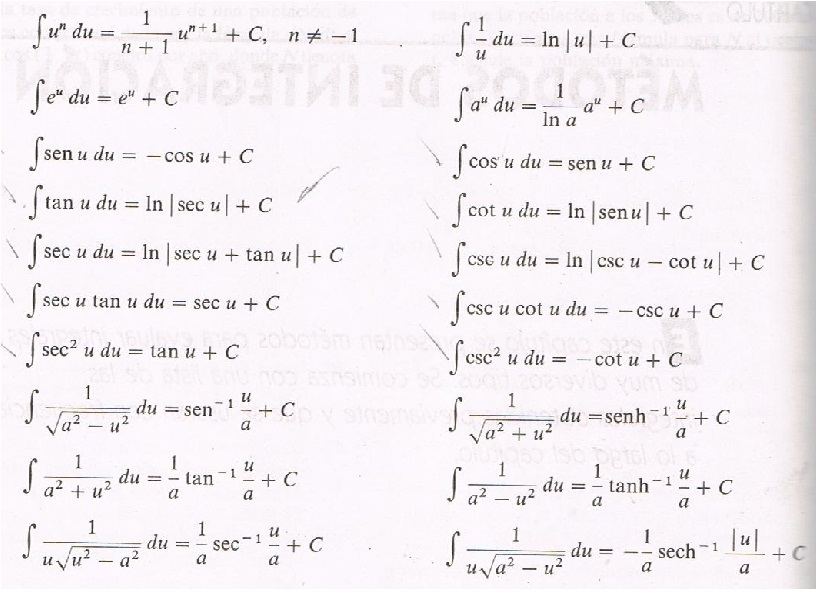 ∫ uⁿ du = 1/(n + 1) uⁿ⁺¹ + C, n ≠ −1
∫ 1/u du = ln |u| + C
∫ eᵘ du = eᵘ + C
∫ aᵘ du = 1/(ln a) aᵘ + C
∫ sen u du = −cos u + C
∫ cos u du = sen u + C
∫ tan u du = ln |sec u| + C
∫ cot u du = ln |sen u| + C
∫ sec u du = ln |sec u + tan u| + C
∫ csc u du = ln |csc u − cot u| + C
∫ sec u tan u du = sec u + C
∫ csc u cot u du = −csc u + C
∫ sec² u du = tan u + C
∫ csc² u du = −cot u + C
∫ 1/√(a² − u²) du = sen⁻¹ u/a + C
∫ 1/√(a² + u²) du = senh⁻¹ u/a + C
∫ 1/(a² + u²) du = 1/a tan⁻¹ u/a + C
∫ 1/(a² − u²) du = 1/a tanh⁻¹ u/a + C
∫ 1/(u√(u² − a²)) du = 1/a sec⁻¹ u/a + C
∫ 1/(u√(a² − u²)) du = −1/a sech⁻¹ |u|/a + C
MÉTODOS DE INTEGRACIÓN